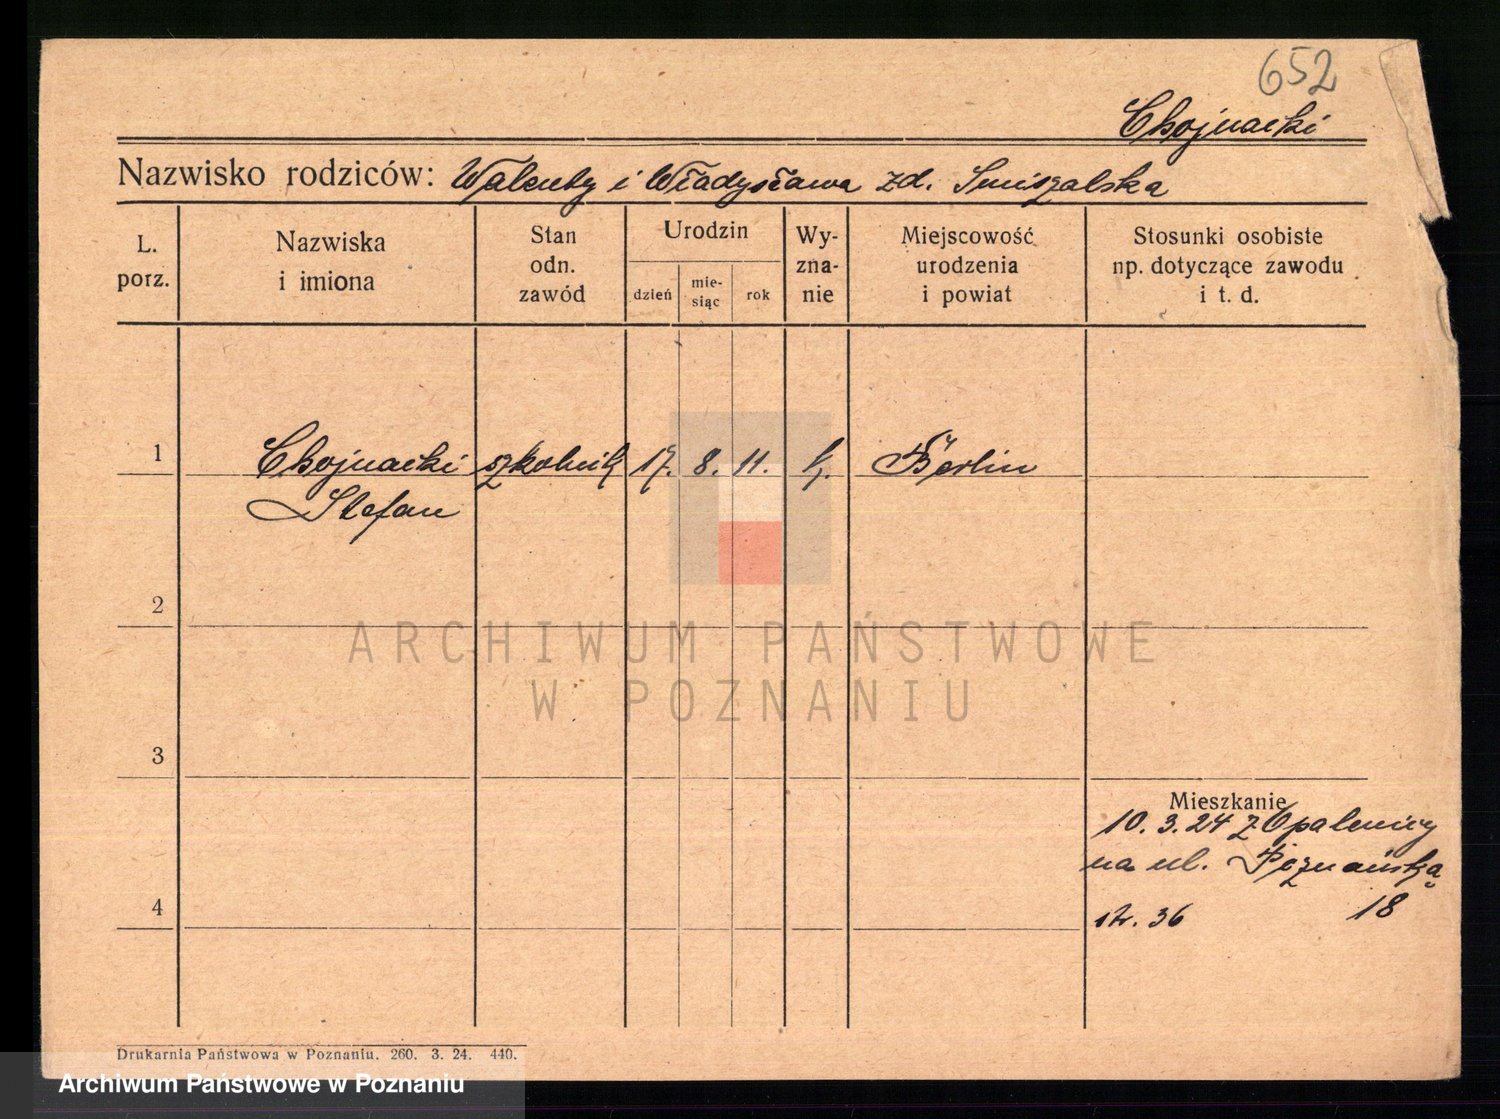 652
Chojnacki
Nazwisko rodziców: Walenty i Władysława zd. Smiszalska
L. porz.
Nazwiska i imiona
Stan odn. zawód
Urodzin
dzień
mie-siąc
rok
Wy-zna-nie
Miejscowość urodzenia i powiat
Stosunki osobiste np. dotyczące zawodu i t. d.
1 Chojnacki szkolnik 17. 8. 11. k. Berlin
Stefan
2
ARCHIWUM PAŃSTWOWE
W POZNANIU
3
Mieszkanie
10.3.24 z Opalenicy
na ul. Poznańską
18
4
str. 36
Drukarnia Państwowa w Poznaniu. 260. 3. 24. 440.
Archiwum Państwowe w Poznaniu